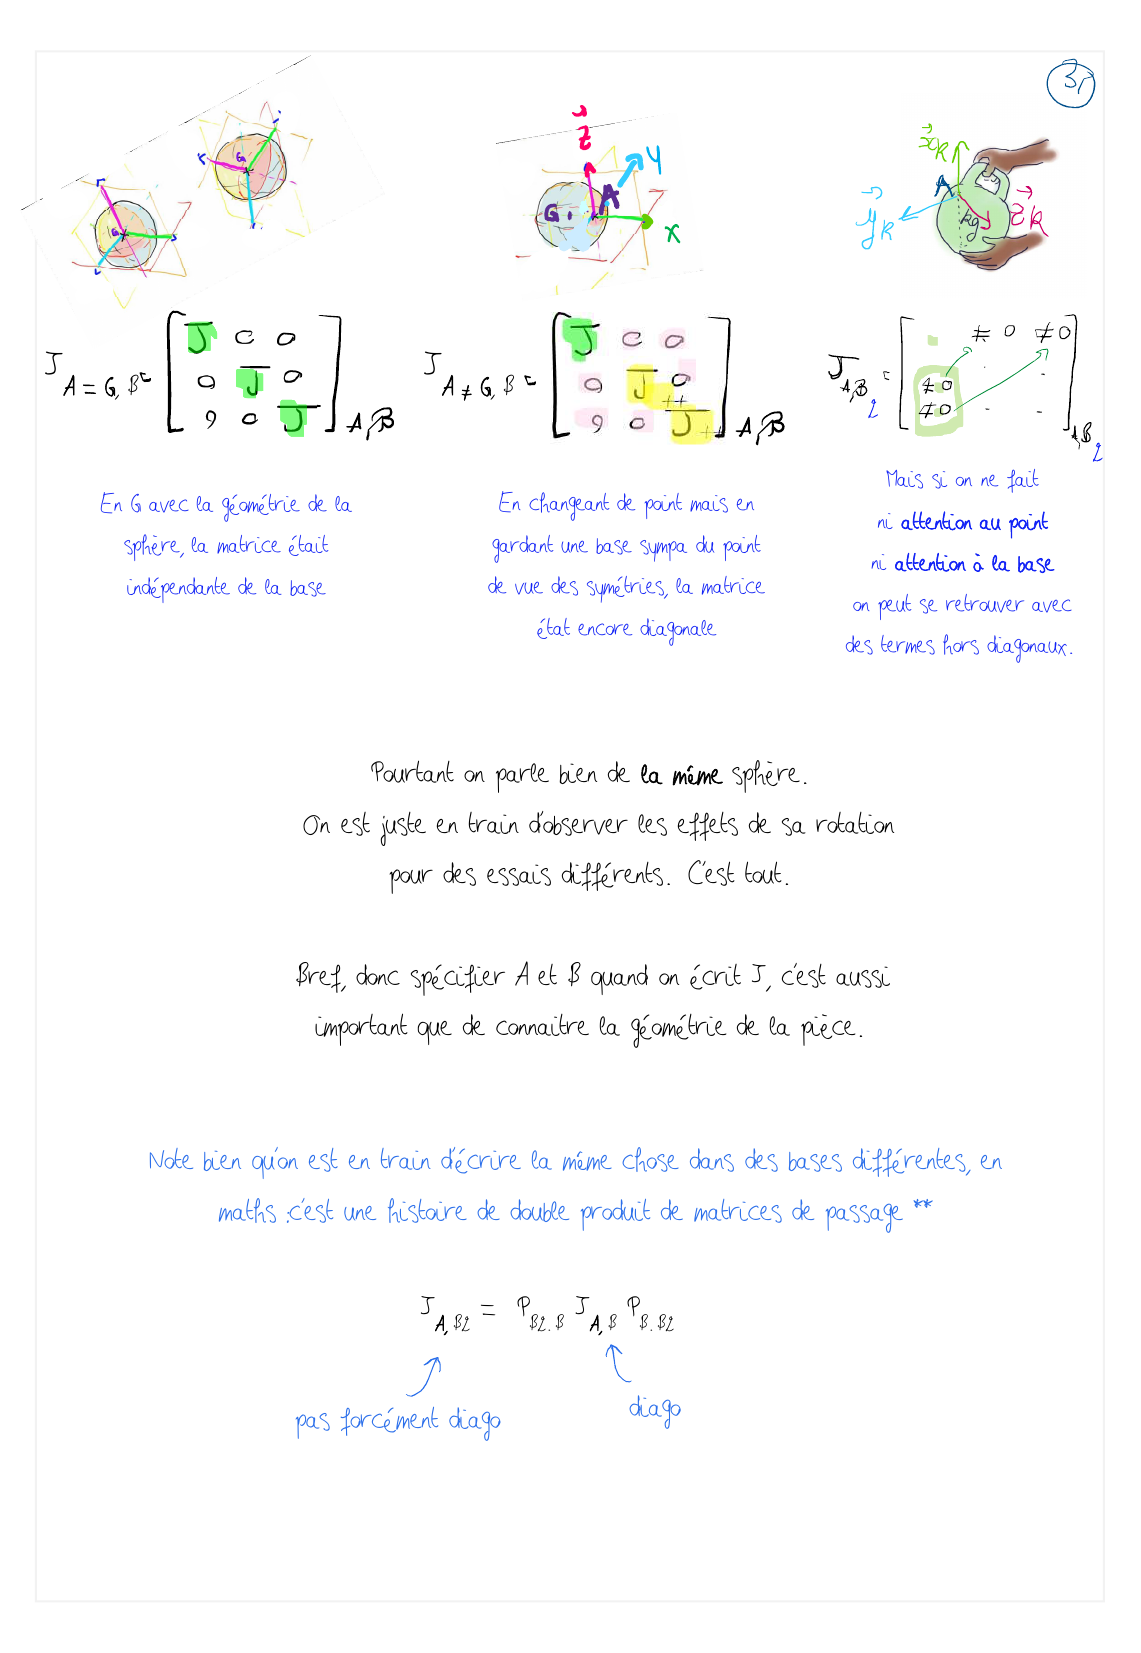 31
J A = G, B = [ J 0 0
0 J 0
0 0 J ] A, B
J A ≠ G, B = [ J 0 0
0 J++ 0
0 0 J++ ] A, B
J A, B2 = [ . ≠0 ≠0
≠0 . .
≠0 . . ] A, B2
G
G
G A
x y z
A
x R
y R
z R
kg
En G avec la géométrie de la
sphère, la matrice était
indépendante de la base
En changeant de point mais en
gardant une base sympa du point
de vue des symétries, la matrice
état encore diagonale
Mais si on ne fait
ni attention au point
ni attention à la base
on peut se retrouver avec
des termes hors diagonaux.
Pourtant on parle bien de la même sphère.
On est juste en train d'observer les effets de sa rotation
pour des essais différents. C'est tout.
Bref, donc spécifier A et B quand on écrit J, c'est aussi
important que de connaitre la géométrie de la pièce.
Note bien qu'on est en train d'écrire la même chose dans des bases différentes, en
maths :c'est une histoire de double produit de matrices de passage **
J A, B2 = P B2.B J A, B P B.B2
pas forcément diago
diago